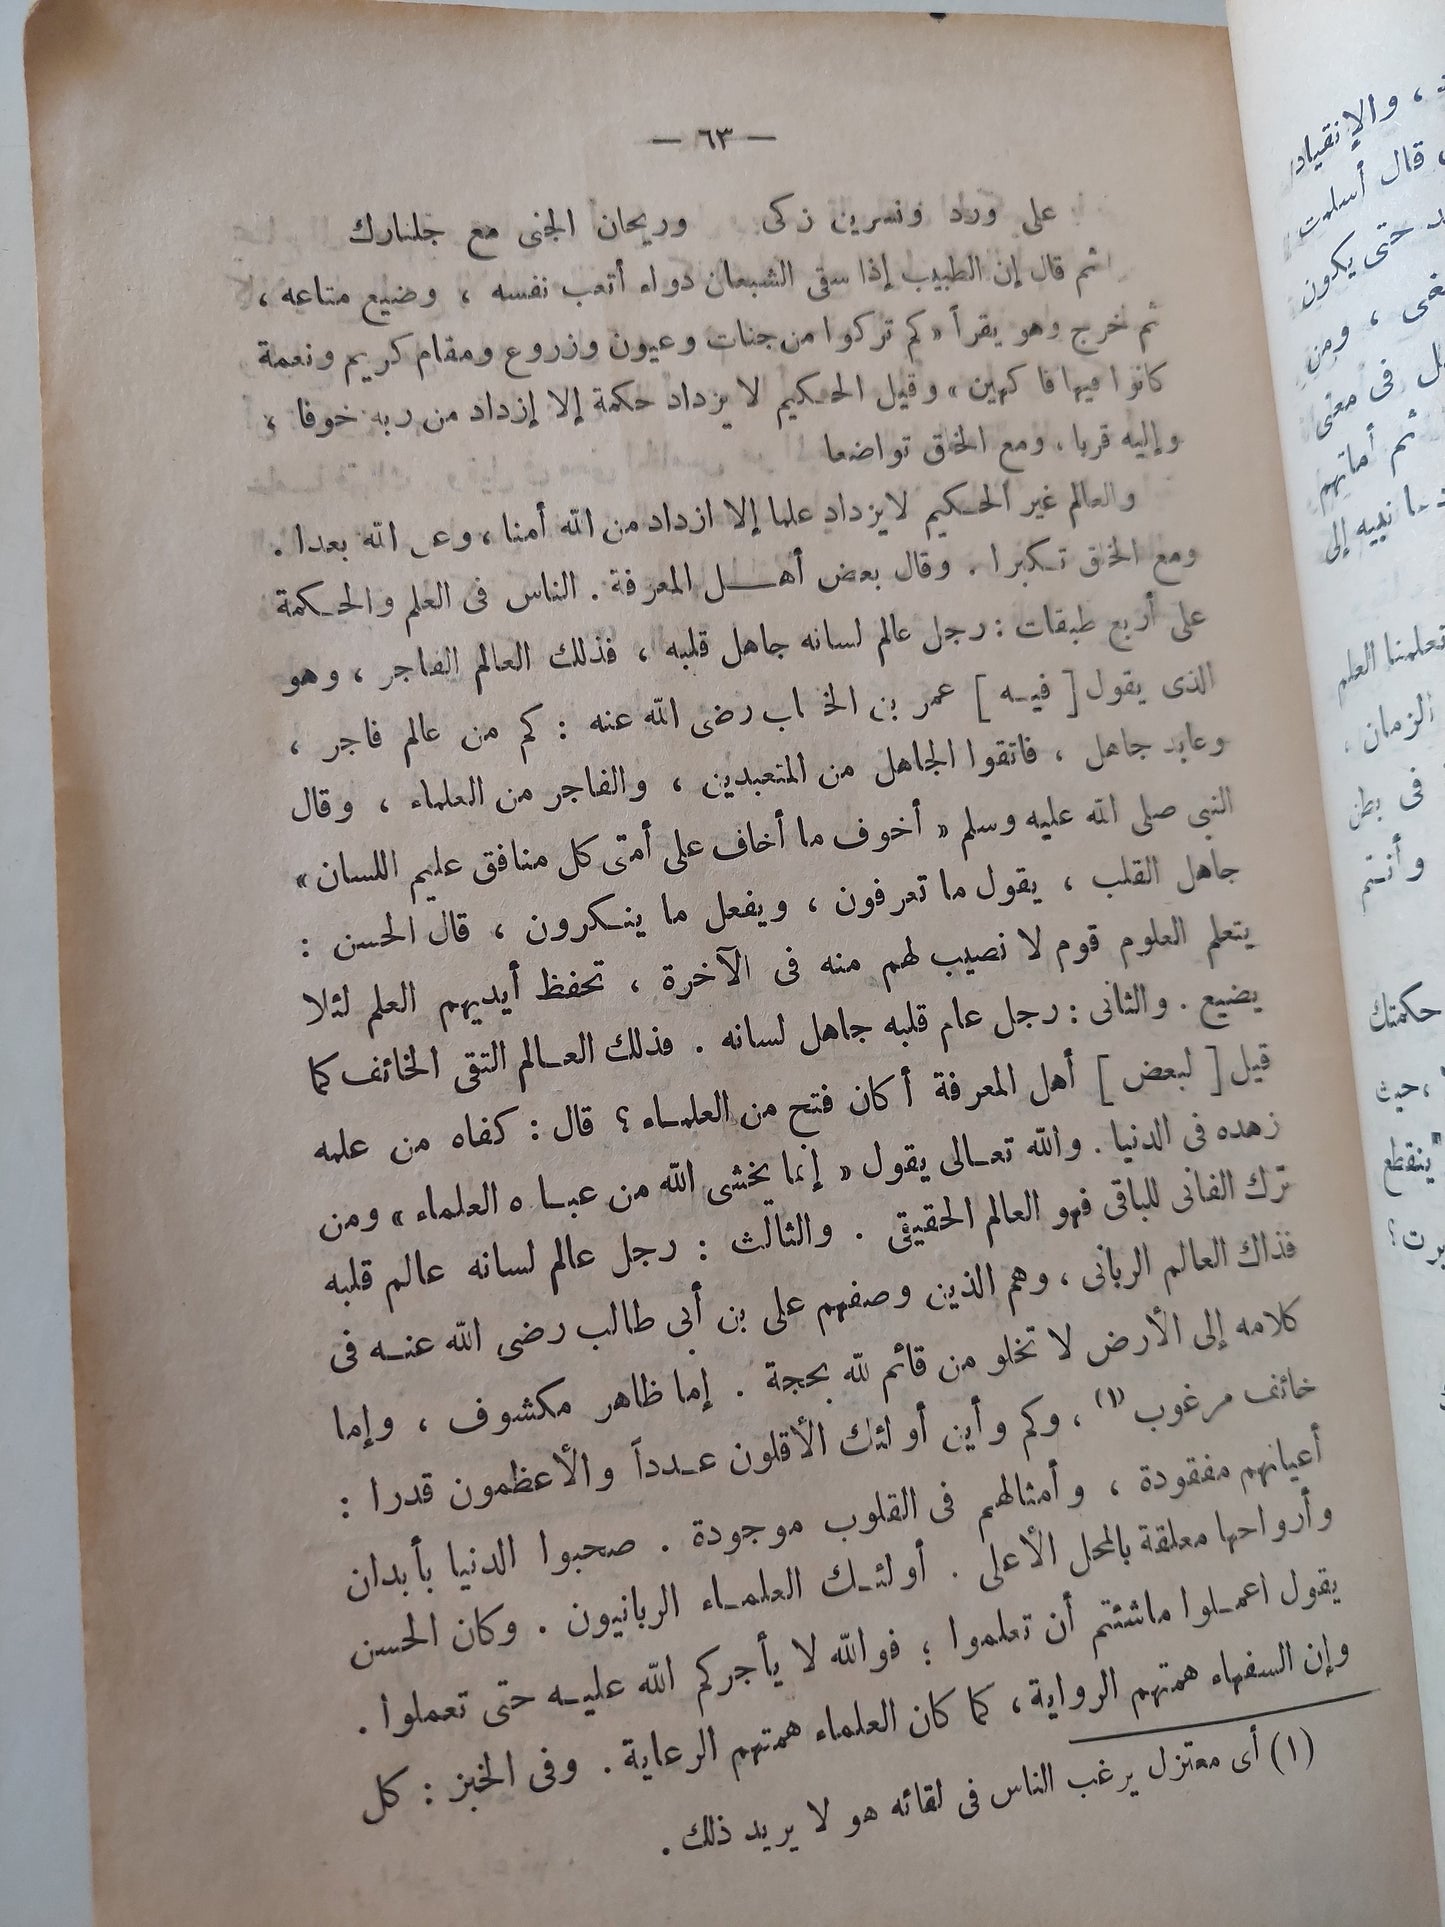 — ٦٣ —
على ورد ونسرين زكى وريحان الجنى مع جلنارك
ثم قال إن الطبيب إذا سقى الشبعان دواء أتعب نفسه ، وضيع متاعه ،
ثم خرج وهو يقرأ « كم تركوا من جنات وعيون وزروع ومقام كريم ونعمة
كانوا فيها فاكهين » وقيل الحكيم لا يزداد حكمة إلا إزداد من ربه خوفا ،
وإليه قربا ، ومع الخلق تواضعا
والعالم غير الحكيم لايزداد علما إلا ازداد من الله أمنا ، وعن الله بعدا .
ومع الخلق تكبرا . وقال بعض أهل المعرفة . الناس فى العلم والحكمة
على أربع طبقات : رجل عالم لسانه جاهل قلبه ، فذلك العالم الفاجر ، وهو
الذى يقول [ فيه ] عمر بن الخ اب رضى الله عنه : كم من عالم فاجر ،
وعابد جاهل ، فاتقوا الجاهل من المتعبدين ، والفاجر من العلماء ، وقال
النبى صلى الله عليه وسلم « أخوف ما أخاف على أمتى كل منافق عليم اللسان »
جاهل القلب ، يقول ما تعرفون ، ويفعل ما ينكرون ، قال الحسن :
يتعلم العلوم قوم لا نصيب لهم منه فى الآخرة ، تحفظ أيديهم العلم لئلا
يضيع . والثانى : رجل عام قلبه جاهل لسانه . فذلك العالم التقى الخائف كما
قيل [ لبعض ] أهل المعرفة أكان فتح من العلماء ؟ قال : كفاه من علمه
زهده فى الدنيا . والله تعالى يقول « إنما يخشى الله من عبا ه العلماء » ومن
ترك الفانى للباقى فهو العالم الحقيقى . والثالث : رجل عالم لسانه عالم قلبه
فذاك العالم الربانى ، وهم الذين وصفهم على بن أبى طالب رضى الله عنه فى
كلامه إلى الأرض لا تخلو من قائم لله بحجة . إما ظاهر مكشوف ، وإما
خائف مرغوب (١) ، وكم وأين أولئك الأقلون عدداً والأعظمون قدرا :
أعيانهم مفقودة ، وأمثالهم فى القلوب موجودة . صحبوا الدنيا بأبدان
وأرواحها معلقة بالمحل الأعلى . أولئك العلماء الربانيون . وكان الحسن
يقول اعملوا ماشئتم أن تعلموا ؛ فوالله لا يأجركم الله عليه حتى تعملوا .
وإن السفهاء همتهم الرواية ، كما كان العلماء همتهم الرعاية . وفى الخبز : كل
(١) أى معتزل يرغب الناس فى لقائه هو لا يريد ذلك .
، والإنقياد
قال أسلمت
حتى يكون
، ومن
فى معنى
ثم أماتهم
نبيه إلى
تعلمنا العلم
الزمان ،
فى بطن
وأنتم
حكمتك
، حيث
ينقطع